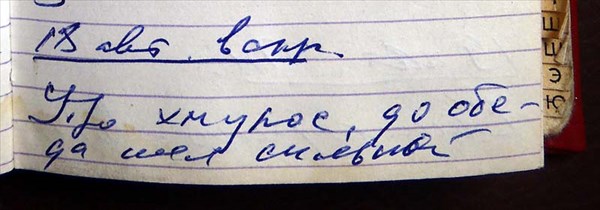 18 авг. вскр.
Утро хмурое, до обе-
да шел сильной
Е
Э
Ю